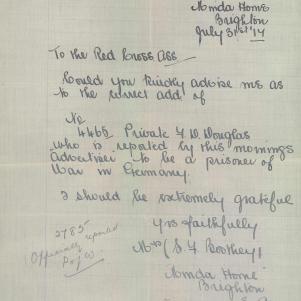 Amda Home
Brighton
July 31st '17
To the Red Cross Ass
Could you kindly advise me as
to the correct add. of
No
4465 Private Y. W. Douglas
who is reported by this mornings
Advertiser to be a prisoner of
War in Germany.
I should be extremely grateful
Yrs faithfully
Mrs (S. Y. Boothey)
Amda Home
Brighton
2785
Officially reported
P of W.